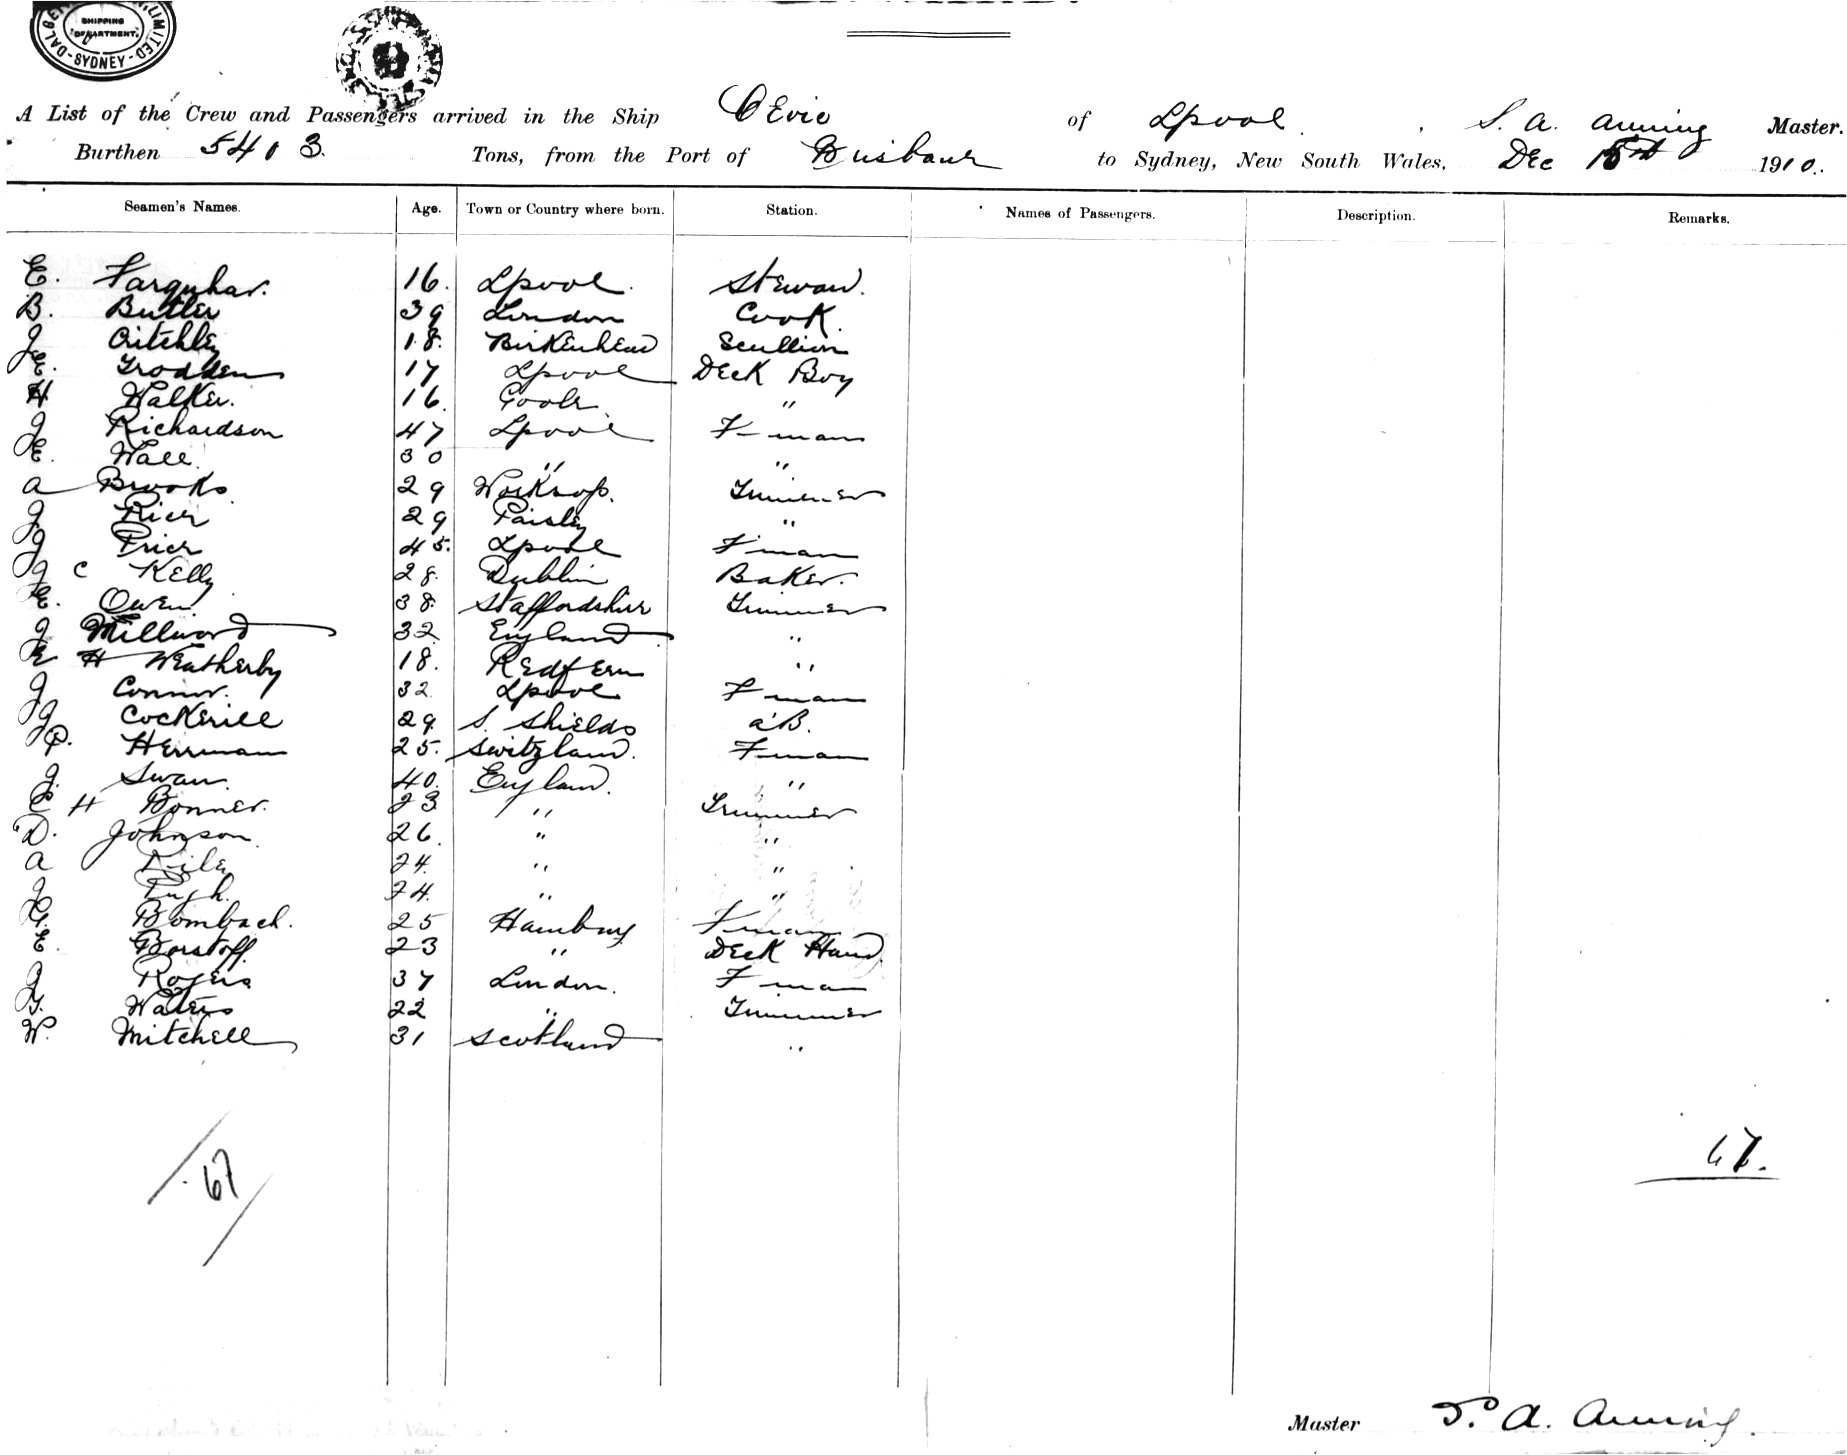 SHIPPING
DEPARTMENT.
SYDNEY
A List of the Crew and Passengers arrived in the Ship Cevic of Lpool S. A. Anning Master.
Burthen 5403 Tons, from the Port of Brisbane to Sydney, New South Wales, Dec 15th 1910.
Seamen's Names. Age. Town or Country where born. Station. Names of Passengers. Description. Remarks.
E. Farquhar. 16. Lpool. Steward.
B. Butler 39 London Cook.
J Critchley 18. Birkenhead Scullion
E. Grodden 17 Lpool Deck Boy
H Walker. 16. Goole. "
J Richardson 47 Lpool F-man
E. Wall. 30 " "
A Brooks 29 Worksop. Trimmer
J Rier 29 Paisley "
J Prier 45. Lpool F'man
J C Kelly 28. Dublin Baker.
E. Owen. 38. Staffordshire Trimmer
J Millword 32 England "
E H Weatherby 18. Redfern "
J Connor. 32 Lpool F-man
J Cockerill 29. S. Shields A.B.
P. Herrman 25. Switzland. F-man
J. Swan. 40. England. "
C H Bonner. 23 " Trimmer
D. Johnson 26. " "
A Riley 24. " "
J Pugh. 24. " "
G. Bombach. 25 Hamburg F-man
E. Borstoff. 23 " Deck Hand.
J Rogers 37 London. F-man
G. Waters 22 " Trimmer
W. Mitchell 31 Scotland "
67
67.
Master S. A. Anning.